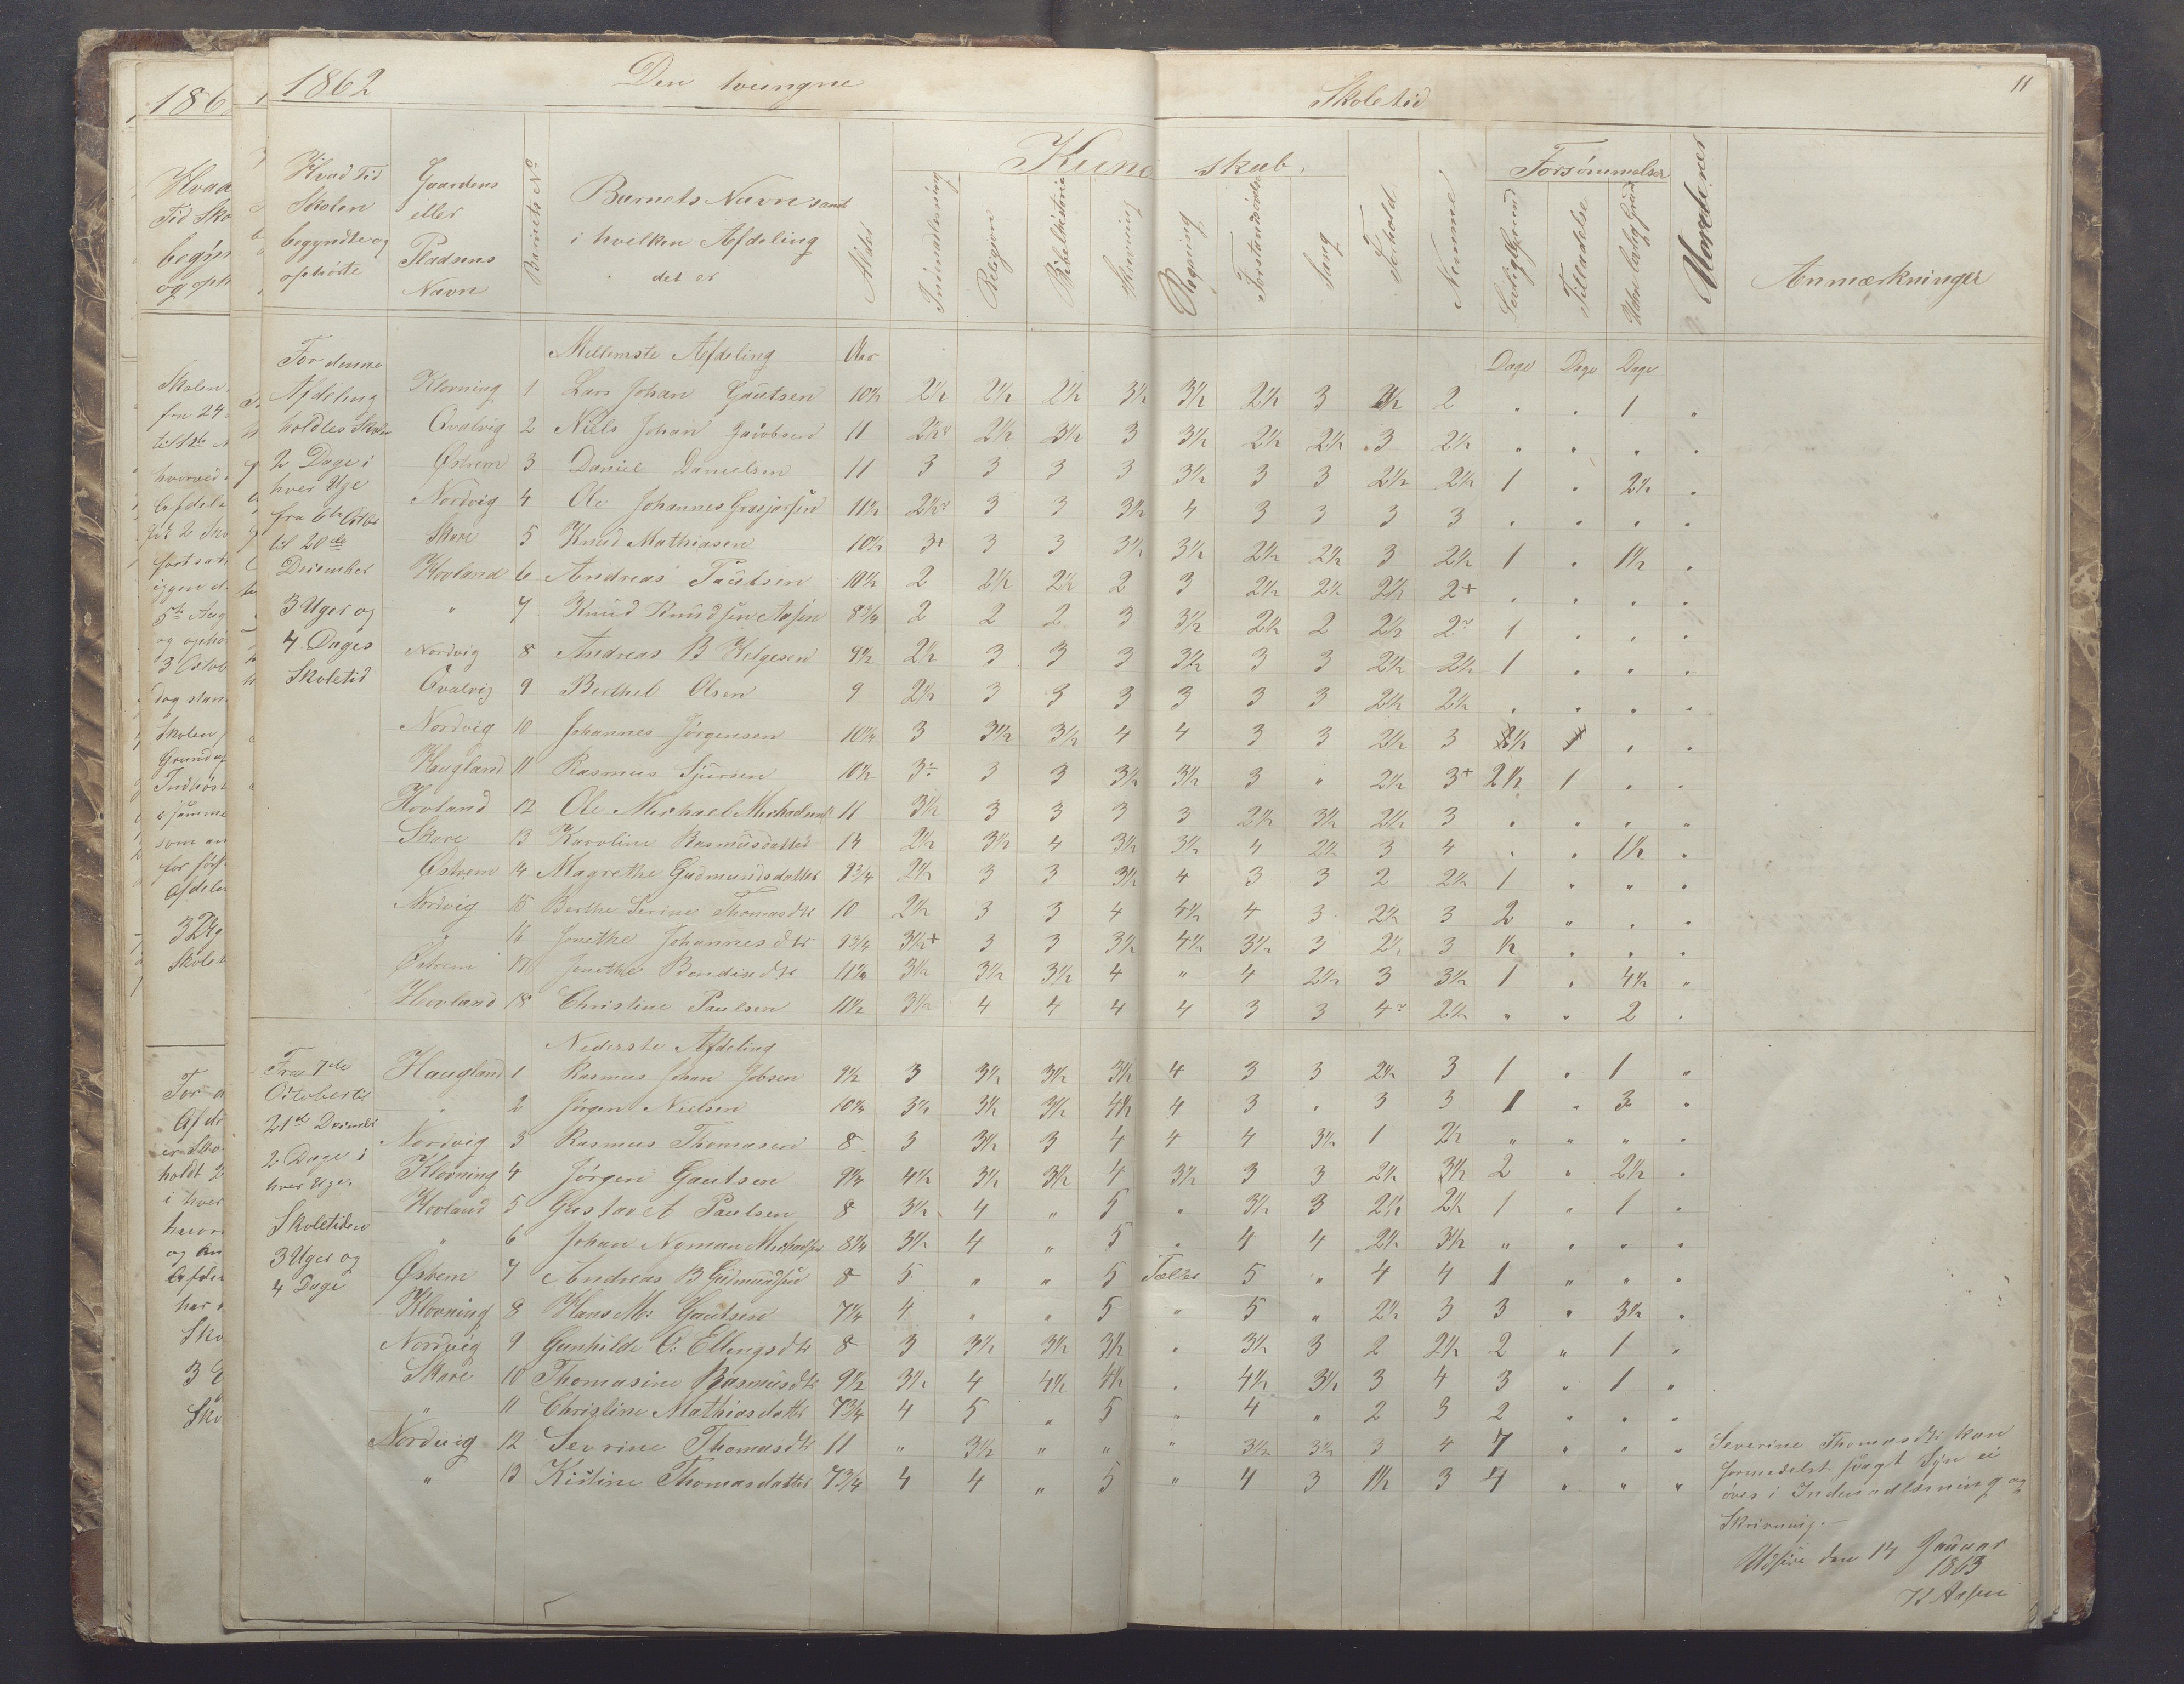 1862 Den tvungne Skoletid 11
Hvad Tid Skolen begyndte og ophørte
Gaardens eller Pladsens Navn
Barnets No
Barnets Navn samt i hvilken Afdeling det er
Alder
Kundskab.
Indenadlæsning
Religion
Bibelhistorie
Skrivning
Regning
Forstandsøvelse
Sang
Forhold
Nemme
Forsømmelser
Gyldig Grund
Tilladelse
Uden lovlig Grund
Anmærkninger
Mellemste Afdeling Aar Dage Dage Dage
For denne
Afdeling
holdtes Skolen
2 Dage i
hver Uge
fra 6te Octbr
til 20de
December
3 Uger og
4 Dages
Skoletid
Klovning 1 Lars Johan Gautsen 10½ 2½ 2½ 2½ 3½ 3½ 2½ 3 3½ 2 " " 1 "
Qvalvig 2 Niels Johan Jacobsen 11 2½ 2½ 3½ 3 3½ 2½ 2½ 3 2½ " " " "
Østrem 3 Daniel Danielsen 11 3 3 3 3 3½ 3 3 2½ 2½ 1 " 2½ "
Nordvig 4 Ole Johannes 11½ 2½ 3 3 3½ 4 3 3 3 3 " " " "
Skare 5 Knud Mathiasen 10½ 3+ 3 3 3½ 3½ 2½ 2½ 3 2½ 1 " 1½ "
Hovland 6 Andreas Paulsen 10½ 2 2½ 2½ 2 3 2½ 2½ 2½ 2+ " " " "
" 7 Knud Knudsen Aasen 8¾ 2 2 2 3 3½ 2½ 2 2½ 2 1 " " "
Nordvig 8 Andreas B Helgesen 9½ 2½ 3 3 3 3½ 3 3 2½ 2½ 1 " " "
Qvalvig 9 Berthel Olsen 9 2½ 3 3 3 3 3 3 2½ 2½ " " " "
Nordvig 10 Johannes Jørgensen 10¼ 3 3½ 3½ 4 4 3 3 2½ 3 " "
Haugland 11 Rasmus Sjursen 10½ 3 3 3 3½ 3½ 3 " 2½ 3+ 2½ 1 " "
Hovland 12 Ole Michael 11 3½ 3 3 3 3 2½ 3½ 2½ 3 " " " "
Skare 13 Karoline Rasmusdatter 14 2½ 3½ 4 3½ 3½ 4 2½ 3 4 " " 1½ "
Østrem 14 Magrethe Gudmundsdatter 9¾ 2½ 3 3 3½ 4 3 3 2 2½ 1 " " "
Nordvig 15 Berthe Serine Thomasdtr 10 2½ 3 3 4 4½ 4 3 2½ 3 2 " " "
" 16 Jonethe Johannesdtr 9¾ 3½+ 3 3 3½ 4½ 3½ 3 2½ 3 ½ " " "
Østrem 17 Jonethe Bendixdtr 11½ 3½ 3½ 3½ 4 " 4 2½ 3 3½ 1 " 4½ "
Hovland 18 Christine Paulsen 11½ 3½ 4 4 4 4 3 3 4 2½ " " 2 "
Nederste Afdeling
Fra 7de
October til
21de Decembr
2 Dage i
hver Uge.
Skoletiden
3 Uger og
4 Dage
Haugland 1 Rasmus Johan Jobsen 9½ 3 3½ 3½ 3½ 4 3 3 2½ 3 1 " 1 "
" 2 Jørgen Nielsen 10¾ 3½ 3½ 3½ 4½ 4 3 " 3 3 1 " 3 "
Nordvig 3 Rasmus Thomasen 8 3 3½ 3 4 4 4 3½ 1 2½ " " " "
Klovning 4 Jørgen Gautsen 9¼ 4½ 3½ 3½ 4 3½ 3 3 2½ 3½ 2 " 2½ "
Hovland 5 Gustav A Paulsen 8 3½ 4 " 5 " 3½ 3 2½ 2½ 1 " 1 "
" 6 Johan Nyman 8¼ 3½ 4 " 5 " 4 4 2½ 3½ " " " "
Østrem 7 Andreas B Gudmundsen 8 5 " " 5 5 " 4 4 1 " " "
Klovning 8 Hans M: Gautsen 7¼ 4 " " 5 " 5 " 2½ 3 3 " 3½ "
Nordvig 9 Gunhilde O: Ellingsdtr 8 3 3½ 3½ 3½ " 3½ 3 2 2½ 2 " 1 "
Skare 10 Thomasine Rasmusdtr 9½ 3½ 4 4½ 4½ " 4½ 3½ 3 4 3 " 1 "
" 11 Christine Mathiasdatter 7¾ 4 5 " 5 " 4 " 2 3 2 " " "
Nordvig 12 Sevrine Thomasdtr 11 " 3½ " " " 3½ 3½ 3 4 7 " " "
" 13 Kistine Thomasdatter 7¾ 4 4 " 5 " 4 3 1½ 3 4 " " "
Severine Thomasdtr kan
formedelst svagt Syn ei
øves i Indenadlæsning og
Skrivning.—
Udsire den 14 Januar
1863
K Aasen